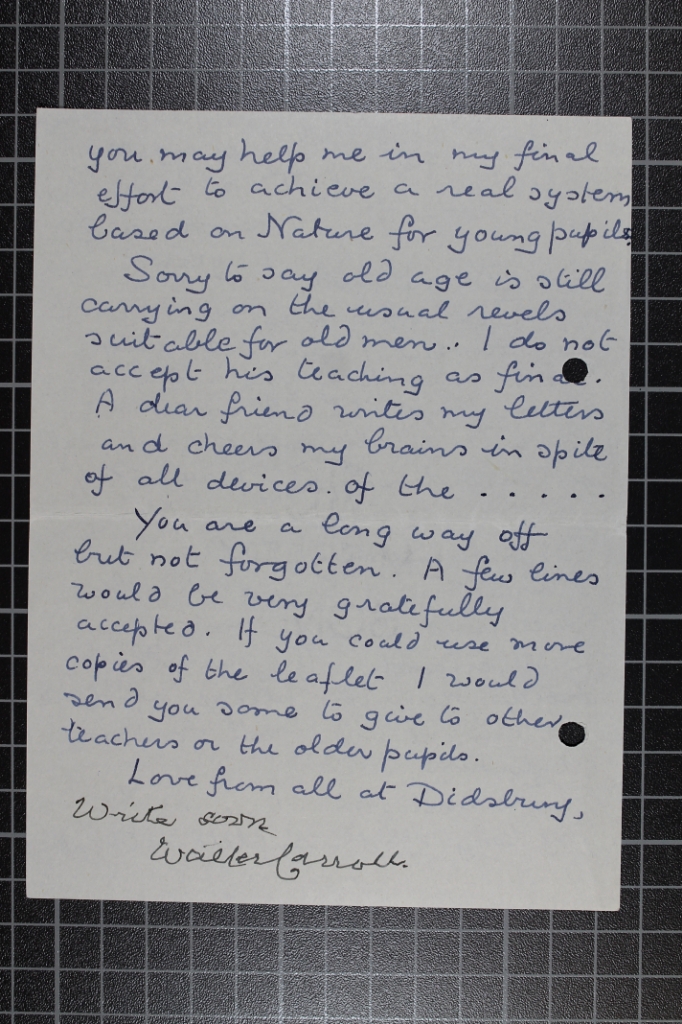 you may help me in my final
effort to achieve a real system
based on Nature for young pupils.
Sorry to say old age is still
carrying on the usual revels
suitable for old men.. I do not
accept his teaching as final.
A dear friend writes my letters
and cheers my brains in spite
of all devices. of the . . . . . .
You are a long way off
but not forgotten. A few lines
would be very gratefully
accepted. If you could use more
copies of the leaflet I would
send you some to give to other
teachers or the older pupils.
Love from all at Didsbury,
Write soon
Walter Carroll.